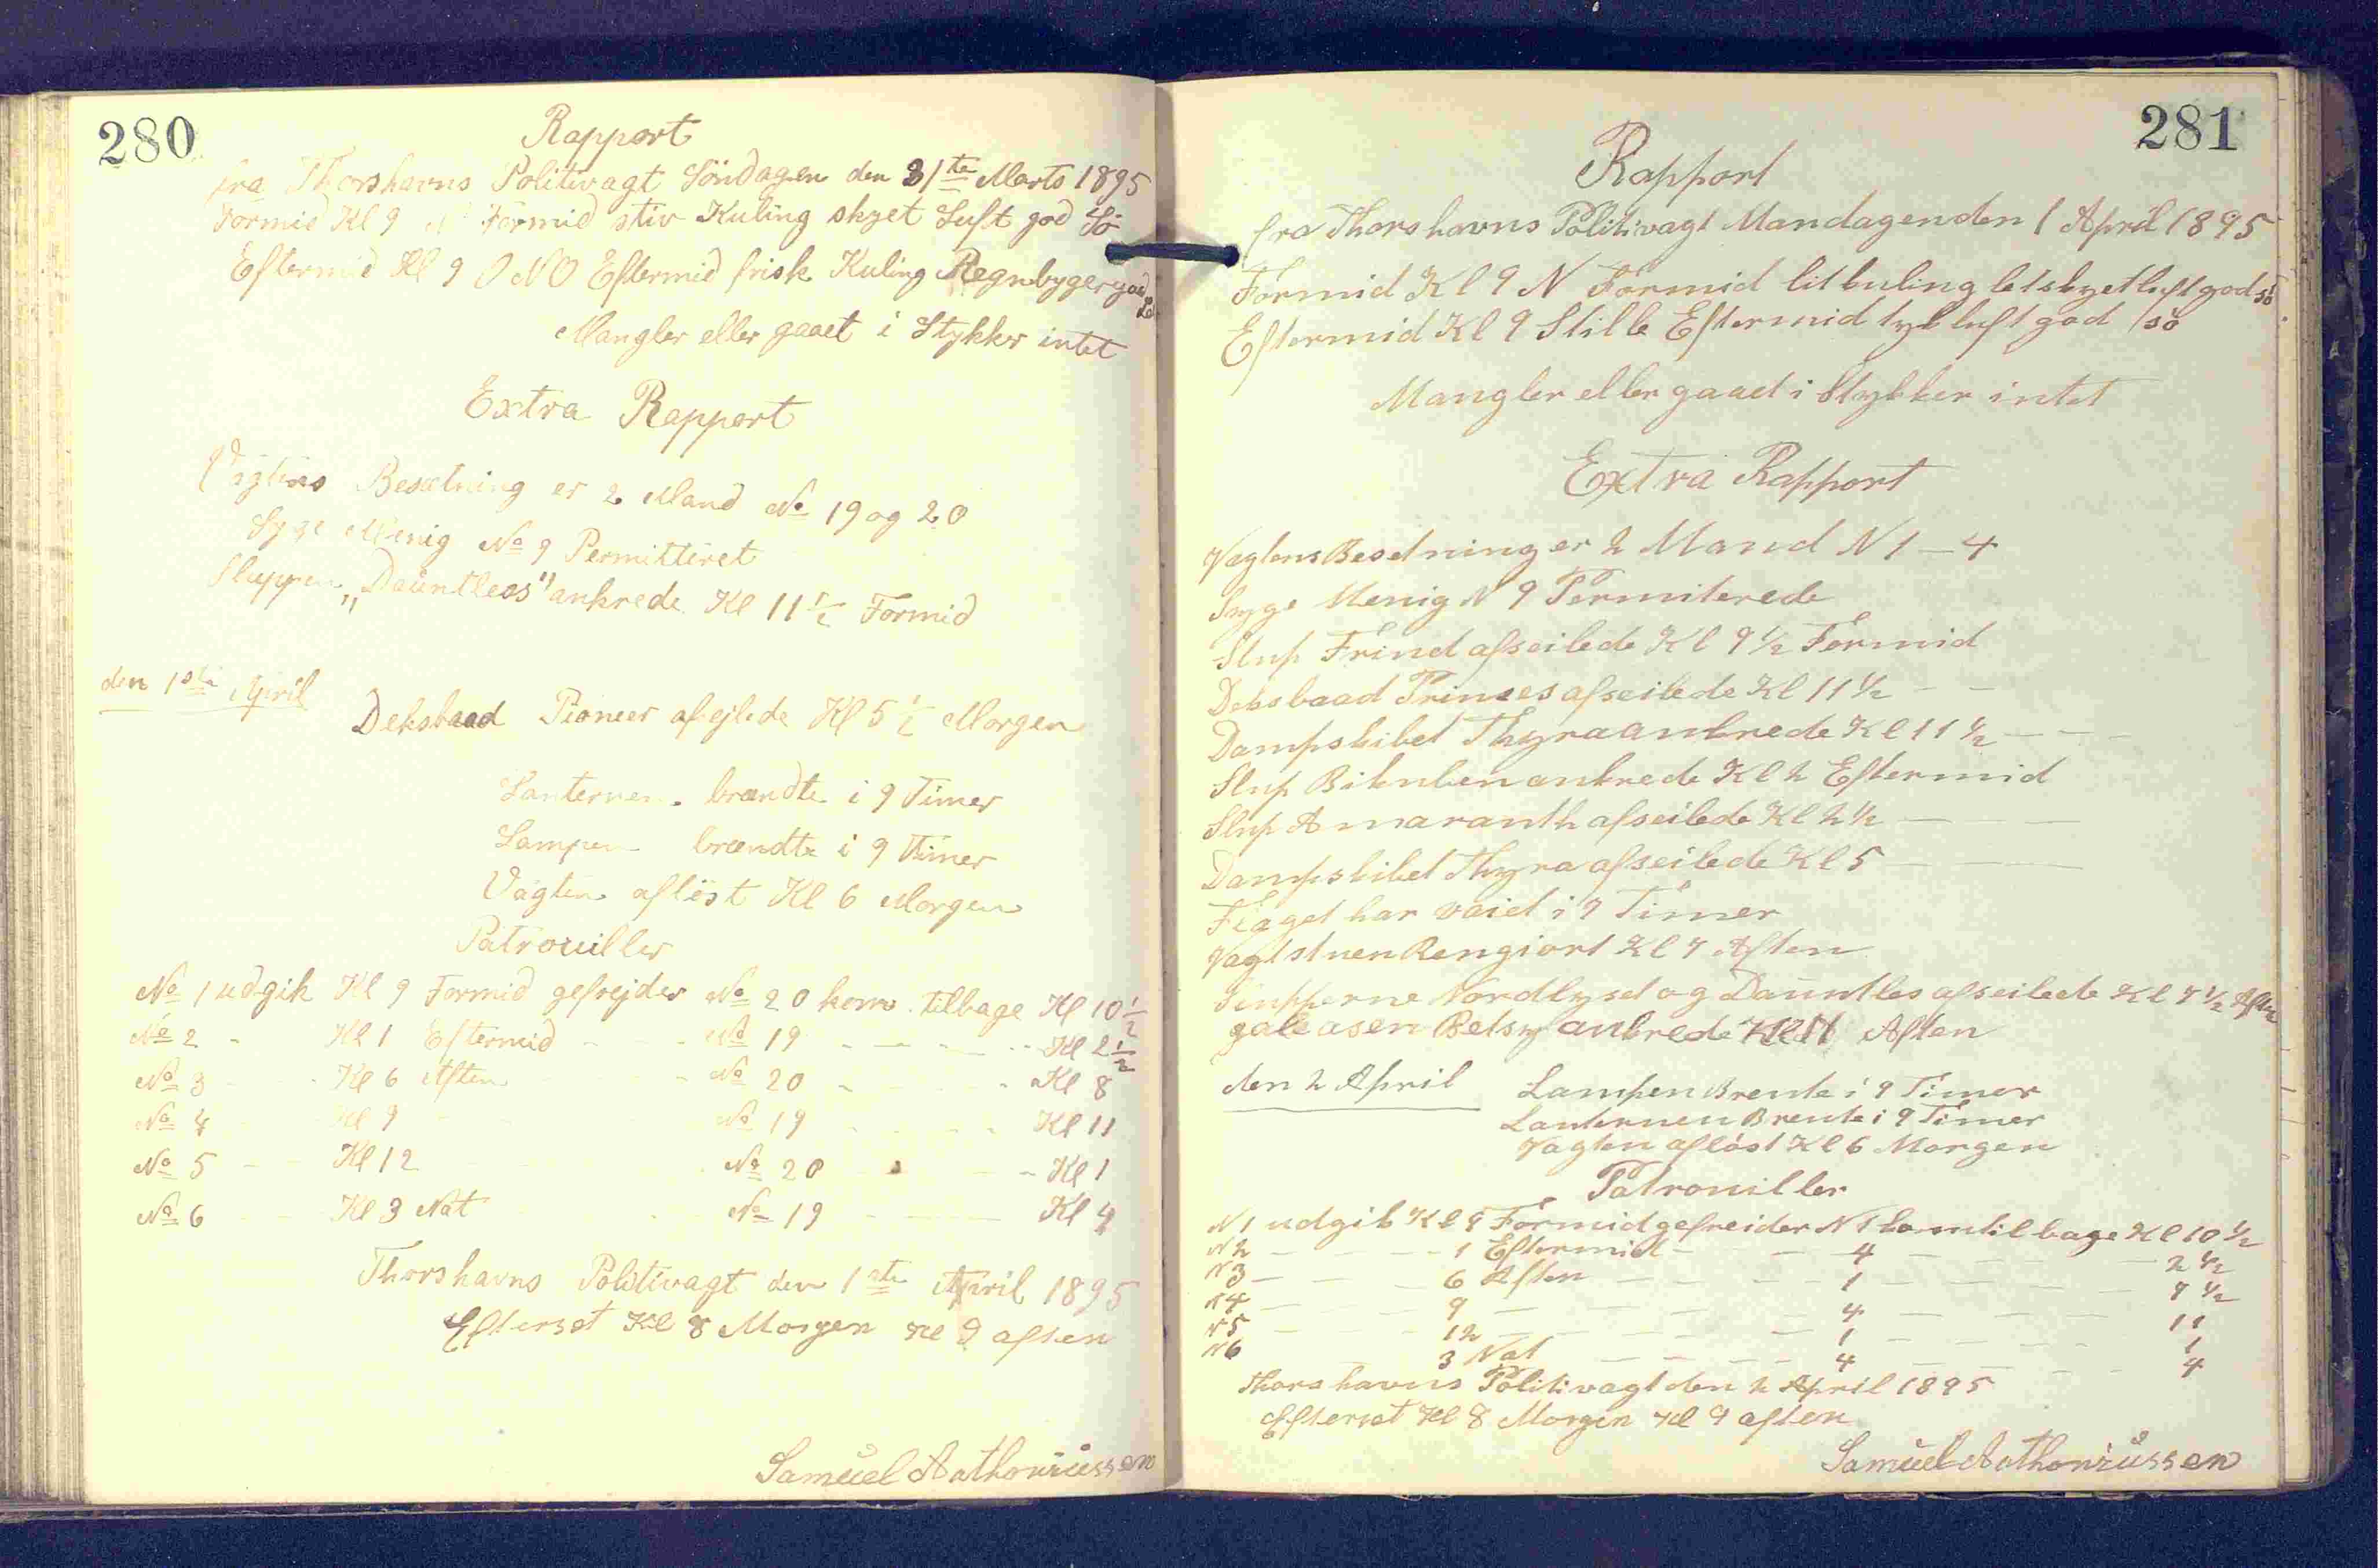 280
Rapport
fra Thorshavns Politivagt Söndagen den 31te Marts 1895
Formid Kl 9 N Formid stiv Kuling skyet Luft god Sö
Eftermid Kl 9 ONO Eftermid frisk Kuling Regnbyger god Sö
Mangler eller gaaet i Stykker intet
Extra Rapport
Vagtens Besætning er 2 Mand No 19 og 20
Syge Menig No 9 Permitteret
Sluppen „Dauntless" ankrede Kl 11 1/2 Formid
den 1ste April
Deksbaad Pioneer afsejlede Kl 5 1/2 Morgen
Lanternen brændte i 9 Timer
Lampen brændte i 9 Timer
Vagten aflöst Kl 6 Morgen
Patrouiller
No 1 udgik Kl 9 Formid gefrejder No 20 kom tilbage Kl 10 1/2
No 2 - Kl 1 Eftermid - - No 19 - - - - Kl 2 1/2
No 3 - - Kl 6 Aften - - No 20 - - - Kl 8
No 4 - Kl 9 - No 19 - - - Kl 11
No 5 - - Kl 12 - No 20 - - - Kl 1
No 6 - - Kl 3 Nat - No 19 - - Kl 4
Thorshavns Politivagt den 1ste April 1895
Efterset Kl 8 Morgen Kl 9 aften
Samuel Anthoniussen
281
Rapport
fra Thorshavns Politivagt Mandagen den 1 April 1895
Formid Kl 9 N Formid lit kuling letskyet luft god sö
Eftermid Kl 9 Stille Eftermid tyk luft god sö
Mangler eller gaaet i Stykker intet
Extra Rapport
Vagtens Besetning er 2 Mand N 1 – 4
Syge Menig N 9 Permiterede
Slup Frind afseilede Kl 9 1/2 Formid
Deksbaad Prinses afseilede Kl 11 1/2 - -
Dampskibet Thyra ankrede Kl 11 1/2 - - -
Slup Bikuben ankrede Kl 2 Eftermid
Slup Amaranth afseilede Kl 2 1/2 - - -
Dampskibet Thyra afseilede Kl 5 - - -
Flaget har vaiet i 9 Timer
Vagtstuen Rengiort Kl 7 Aften
Slupperne Nordlyset og Dauntles afseilede Kl 7 1/2 Aften
galeasen Betsy ankrede Kl 11 Aften
den 2 April
Lampen Brente i 9 Timer
Lanternen Brente i 9 Timer
Vagten aflöst Kl 6 Morgen
Patrouiller
N 1 udgik Kl 9 Formid gefreider N 1 kom tilbage Kl 10 1/2
N 2 - - - 1 Eftermid - - 4 - - - 2 1/2
N 3 - - - 6 Aften - - - 1 - - - 7 1/2
N 4 - - - 9 - - - 4 - - - 11
N 5 - - - 12 - - - 1 - - - 1
N 6 - - 3 Nat - - - 4 - - - 4
Thorshavns Politivagt den 2 April 1895
Efterset Kl 8 Morgen Kl 9 aften
Samuel Anthoniussen